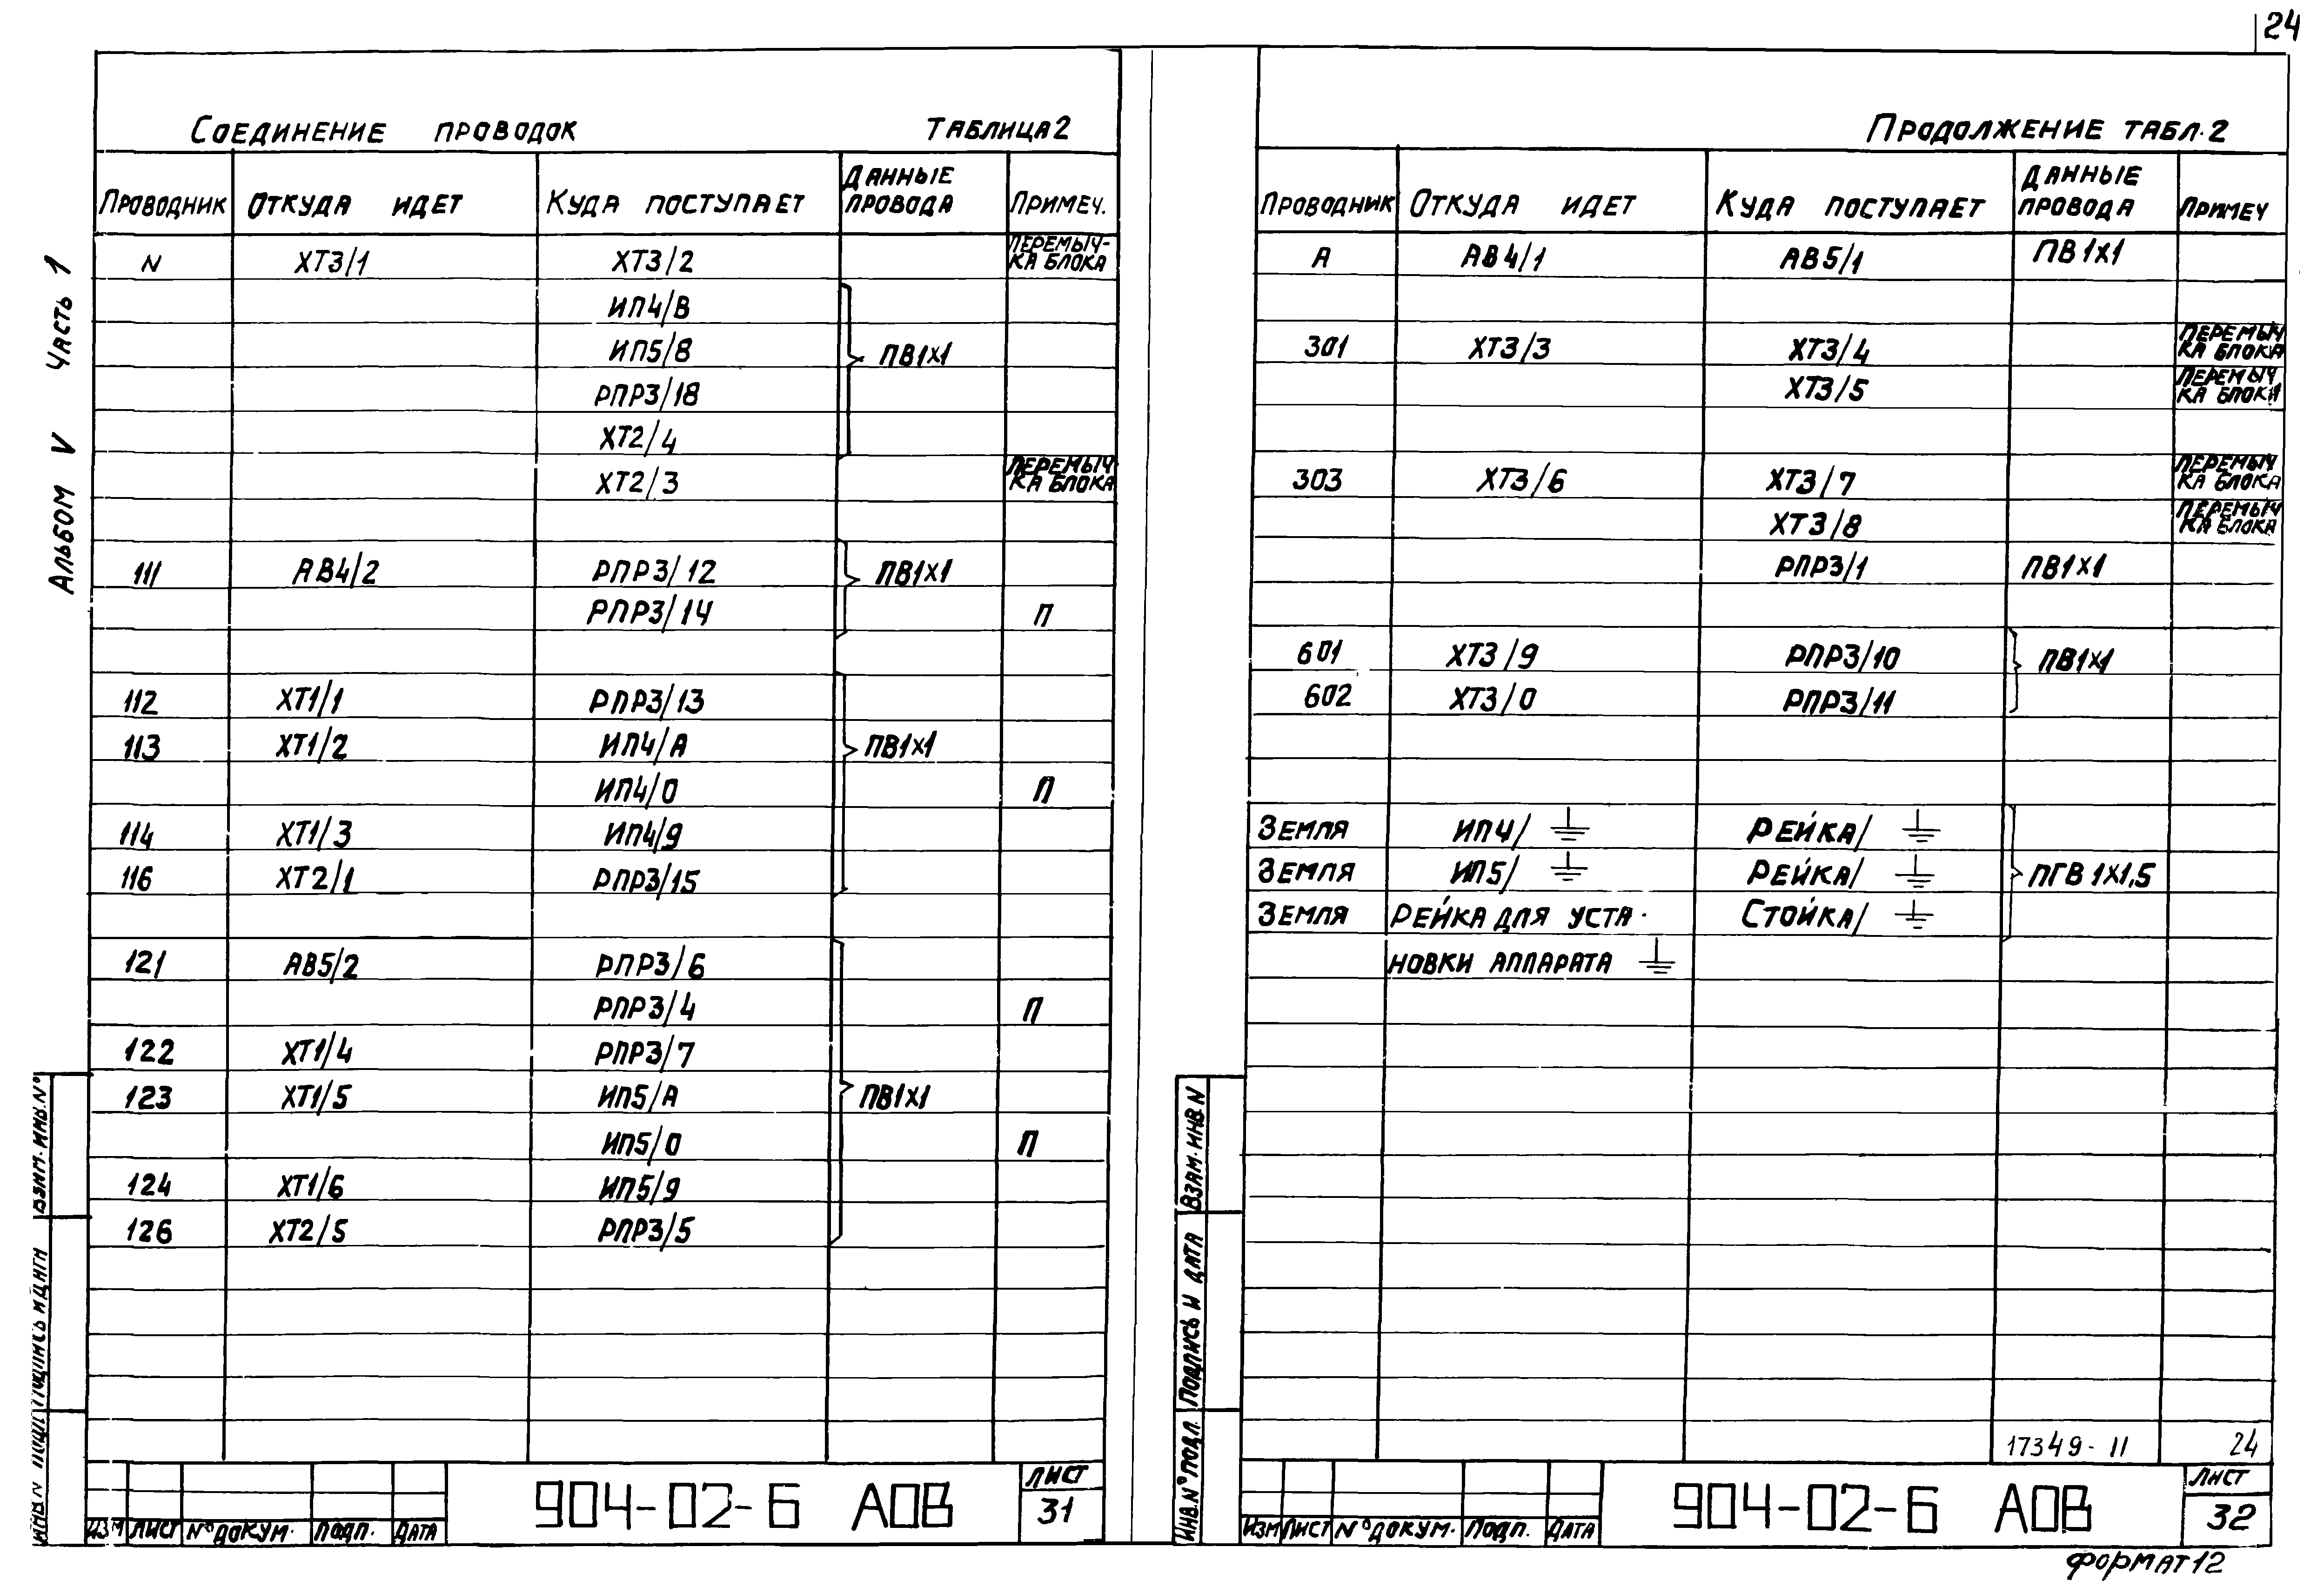 24
Альбом V Часть 1
Соединение проводок Таблица 2
Проводник Откуда идет Куда поступает Данные провода Примеч.
N ХТ3/1 ХТ3/2 Перемыч-
ка блока
ИП4/В
ИП5/8 ПВ1х1
РПР3/18
ХТ2/4
ХТ2/3 Перемыч
ка блока
111 АВ4/2 РПР3/12 ПВ1х1
РПР3/14 П
112 ХТ1/1 РПР3/13
113 ХТ1/2 ИП4/А ПВ1х1
ИП4/0 П
114 ХТ1/3 ИП4/9
116 ХТ2/1 РПР3/15
121 АВ5/2 РПР3/6
РПР3/4 П
122 ХТ1/4 РПР3/7
123 ХТ1/5 ИП5/А ПВ1х1
ИП5/0 П
124 ХТ1/6 ИП5/9
126 ХТ2/5 РПР3/5
Инв.N подл. Подпись и дата Взам.инв.N°
Изм Лист N°докум. Подп. Дата
904-02-6 АОВ
Лист
31
Продолжение табл.2
Проводник Откуда идет Куда поступает Данные провода Примеч
А АВ4/1 АВ5/1 ПВ1х1
301 ХТ3/3 ХТ3/4 Перемыч
ка блока
ХТ3/5 Перемыч
ка блока
303 ХТ3/6 ХТ3/7 Перемыч
ка блока
ХТ3/8 Перемыч
ка блока
РПР3/1 ПВ1х1
601 ХТ3/9 РПР3/10 ПВ1х1
602 ХТ3/0 РПР3/11
Земля ИП4/⏚ Рейка/⏚
Земля ИП5/⏚ Рейка/⏚ ПГВ 1х1,5
Земля Рейка для уста- Стойка/⏚
новки аппарата ⏚
17349-11 24
Инв.N°подл. Подпись и дата Взам.инв.N
Изм Лист N°докум. Подп. Дата
904-02-6 АОВ
Лист
32
Формат 12